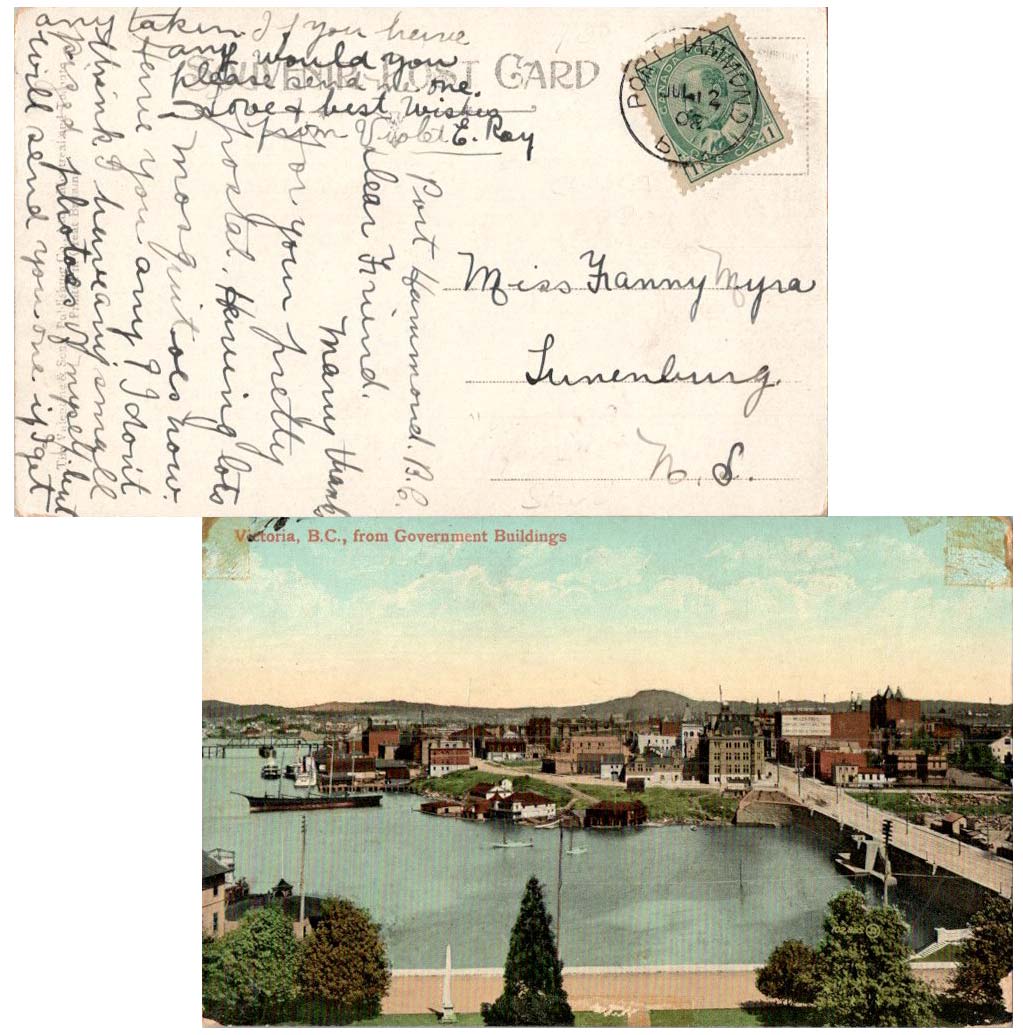 Port Hammond. B.C.
Dear Friend.
Many thanks
for your pretty
postal. Having lots
of mosquitoes now.
Have you any I don't
think I have any small
sized photoes of myself but
will send you one if I get
any taken If you have
any would you
please send me one.
Love & best wishes
from Violet E. Ray
SOUVENIR POST CARD
PORT HAMMOND
JUL 12
08
B.C.
CANADA
1 ONE CENT 1
Miss Fanny Myra
Lunenburg.
N. S.
The Valentine & Sons' Publishing Co.
Printed in Great Britain
Victoria, B.C., from Government Buildings
102,885